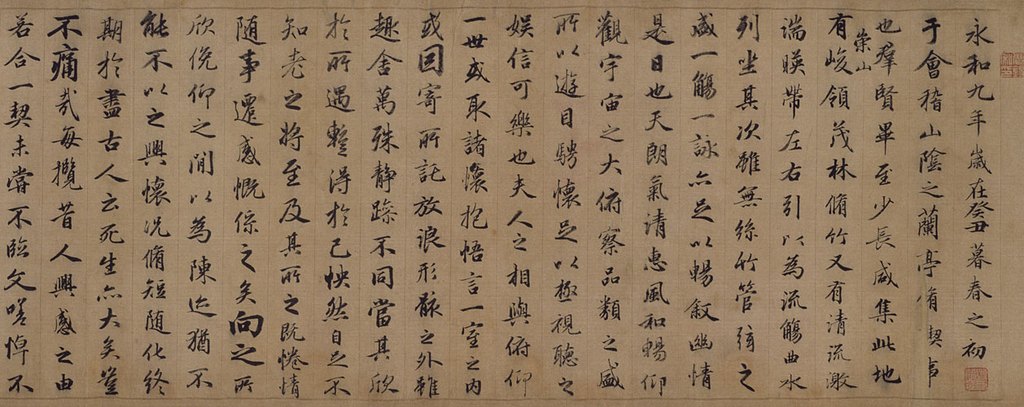 永和九年歲在癸丑暮春之初
于會稽山陰之蘭亭脩稧事
也羣賢畢至少長咸集此地
有崇山峻領茂林脩竹又有清流激
湍暎帶左右引以為流觴曲水
列坐其次雖無絲竹管弦之
盛一觴一詠亦足以暢敘幽情
是日也天朗氣清惠風和暢仰
觀宇宙之大俯察品類之盛
所以遊目騁懷足以極視聽之
娛信可樂也夫人之相與俯仰
一世或取諸懷抱悟言一室之內
或因寄所託放浪形骸之外雖
趣舍萬殊靜躁不同當其欣
於所遇蹔得於己怏然自足不
知老之將至及其所之既惓情
隨事遷感慨係之矣向之所
欣俛仰之閒以為陳迹猶不
能不以之興懷況脩短隨化終
期於盡古人云死生亦大矣豈
不痛哉每攬昔人興感之由
若合一契未嘗不臨文嗟悼不